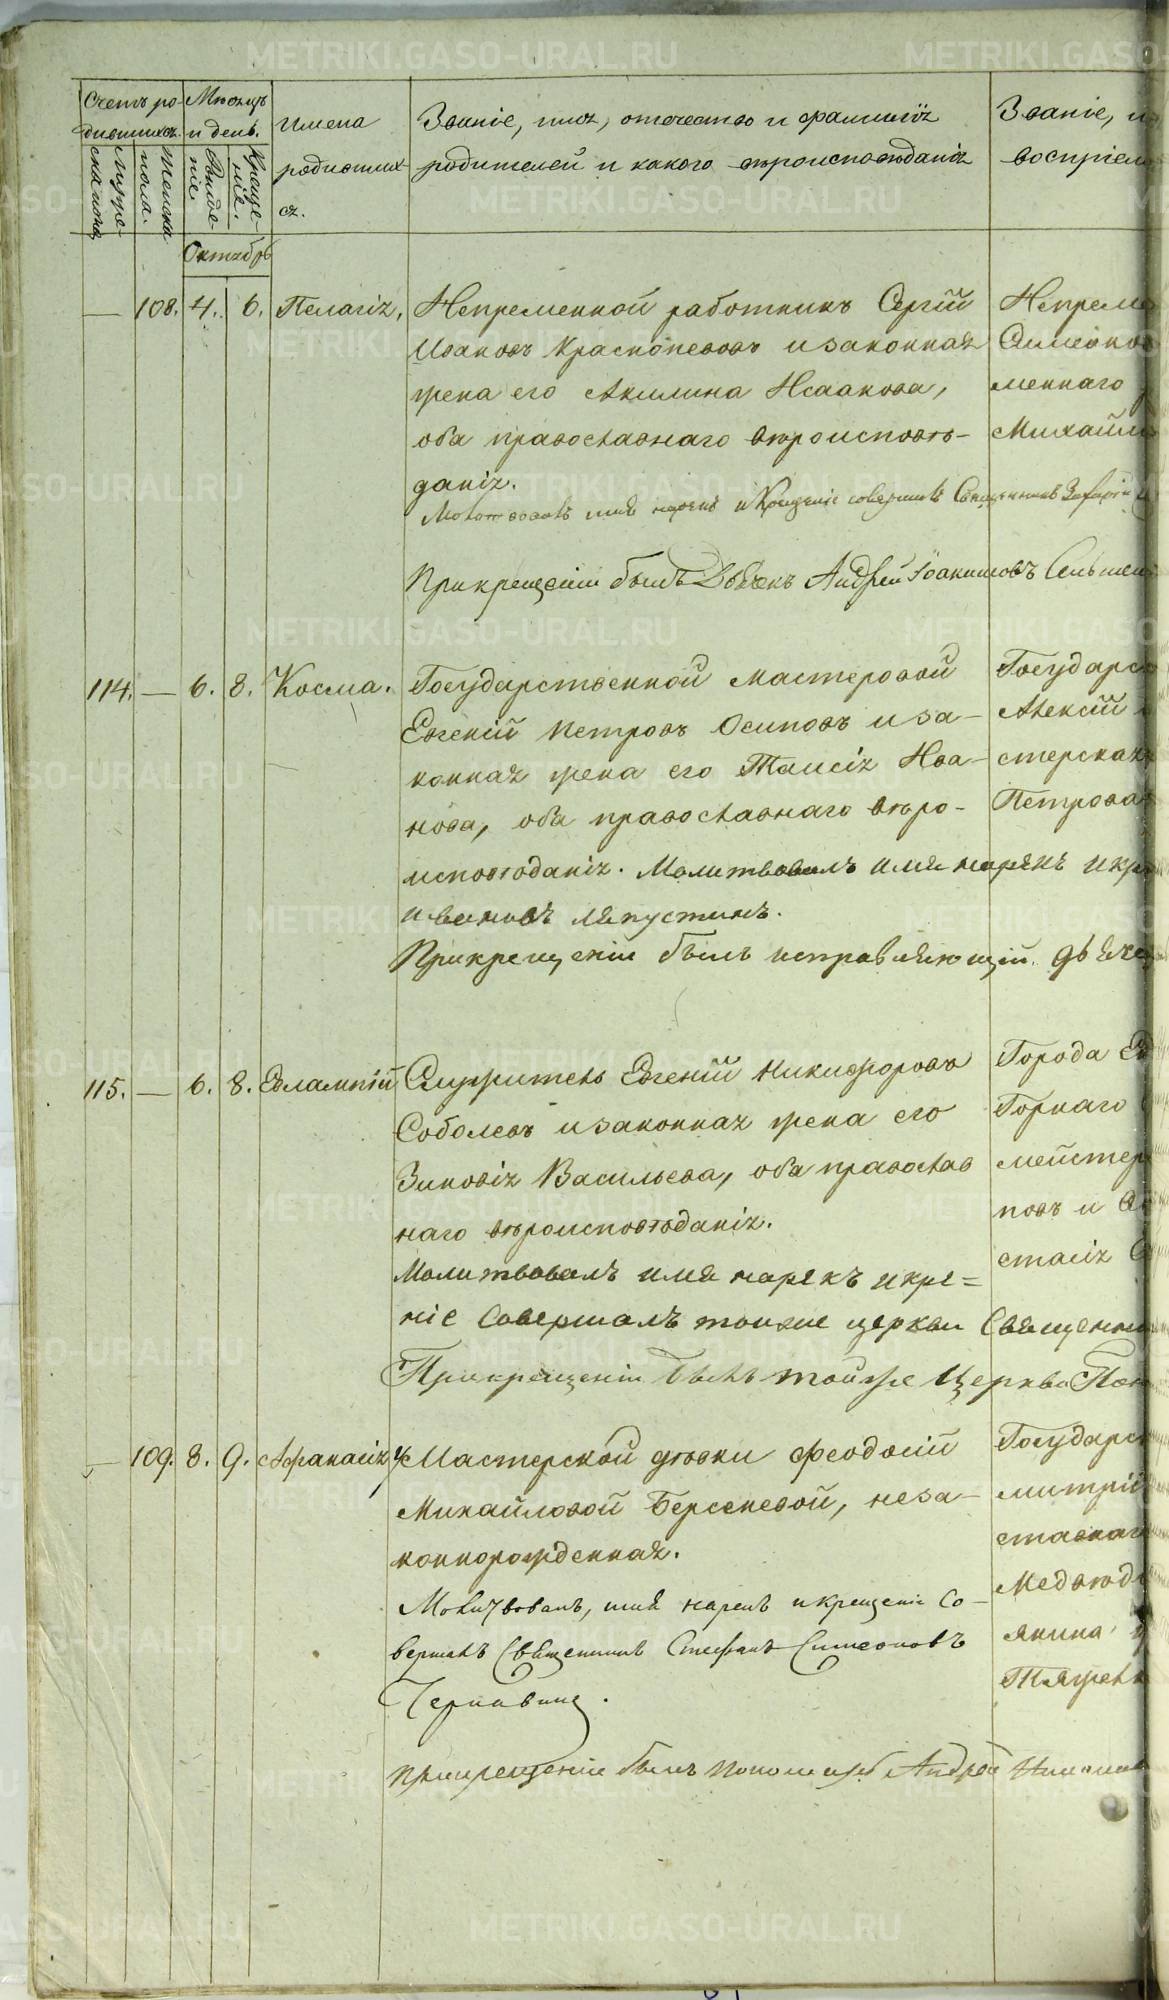 Счетъ ро-
дившихся.
Муже-
ска пола.
Женска
пола.
Мѣсяцъ
и день.
Рожде-
ніе.
Креще-
ніе.
Имена
родивших
ся.
Званіе, имя, отчество и фамилія
родителей и какого вѣроисповѣданія
Званіе, и
воспріем
Октябрь
— 108. 4. 6. Пелагія.
Непременной работникъ Сергій
Ивановъ Краснопевовъ и законная
жена его Акилина Исаакова,
оба православнаго вѣроисповѣ-
данія.
Молитвовалъ имя нарекъ и Крещеніе совершалъ Священникъ Захарій
При крещеніи былъ Дьячекъ Андрей Іоакимовъ
Непреме
Симеонов
меннаго
Михайл
114. — 6. 8. Косма.
Государственной мастеровой
Евгеній Петровъ Осиповъ и за-
конная жена его Таисія Ива-
нова, оба православнаго вѣро-
исповѣданія. Молитвовалъ имя нарекъ и кре
Ивановъ Ляпустинъ.
При крещеніи былъ исправляющій дьяче
Государс
Алексій
стерская
Петрова
115. — 6. 8. Евлампій
Служитель Евгеній Никифоровъ
Соболевъ и законная жена его
Зиновія Васильева, оба православ
наго вѣроисповѣданія.
Молитвовалъ имя нарекъ и кре=
ніе совершалъ тоиже церкви Священни
При крещеніи былъ тойже Церкви Пон
Города Ек
Горнаго
мейстер
повъ и
стасія
— 109. 8. 9. Афанасія
Мастерской дѣвки Феодосіи
Михайловой Берсеневой, неза-
коннорожденная.
Молитвовалъ, имя нарекъ и крещеніе со-
вершалъ Священникъ Стефанъ Симеоновъ
Чернавинъ.
При крещеніи былъ пономарь Андрей
Государс
митрій
ставнаг
Медвѣд
янина
Тяжел
METRIKI.GASO-URAL.RU